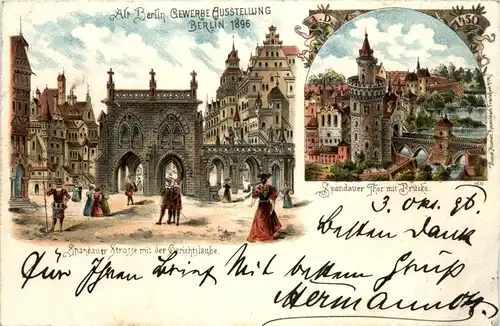 Alt-Berlin GEWERBE AUSSTELLUNG
BERLIN 1896
A. D.
1450
Spandauer Thor mit Brücke.
Spandauer Strasse mit der Gerichtslaube.
3. Okt. 96.
Besten Dank
Für Ihren Brief Mit bestem Gruß